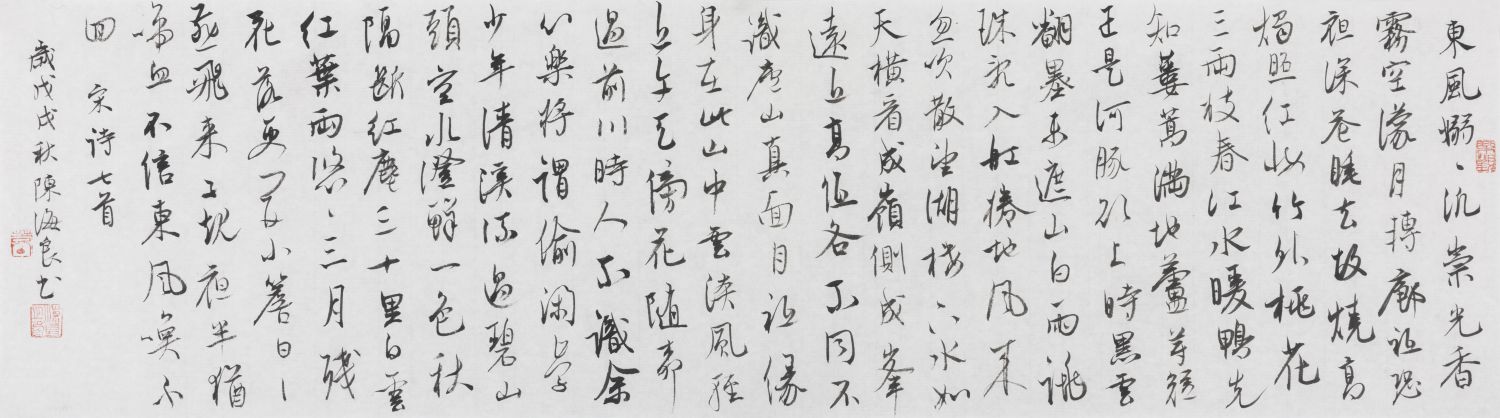 東風嫋〻汎崇光香
霧空濛月轉廊祗恐
夜深花睡去故燒高
燭照紅妝竹外桃花
三兩枝春江水暖鴨先
知蔞蒿滿地蘆芽短
正是河豚欲上時黑雲
翻墨未遮山白雨跳
珠亂入船捲地風来
忽吹散望湖樓下水如
天橫看成嶺側成峯
遠近高低各不同不
識廬山真面目祗緣
身在此山中雲淡風輕
近午天傍花隨柳
過前川時人不識余
心樂將謂偷閑學
少年清溪流過碧山
頭空水澄鮮一色秋
隔斷紅塵三十里白雲
紅葉兩悠〻三月殘
花落更開小簷日〻
燕飛来子規夜半猶
啼血不信東風喚不
回 宋詩七首
歲戊戌秋陳海良書